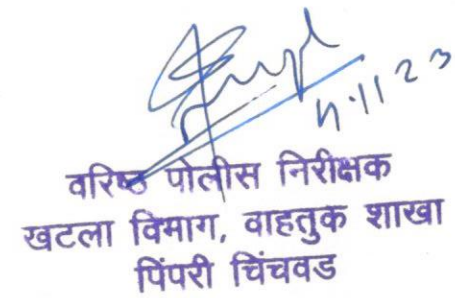 वरिष्ठ पोलीस निरीक्षक
खटला विभाग, वाहतुक शाखा
पिंपरी चिंचवड